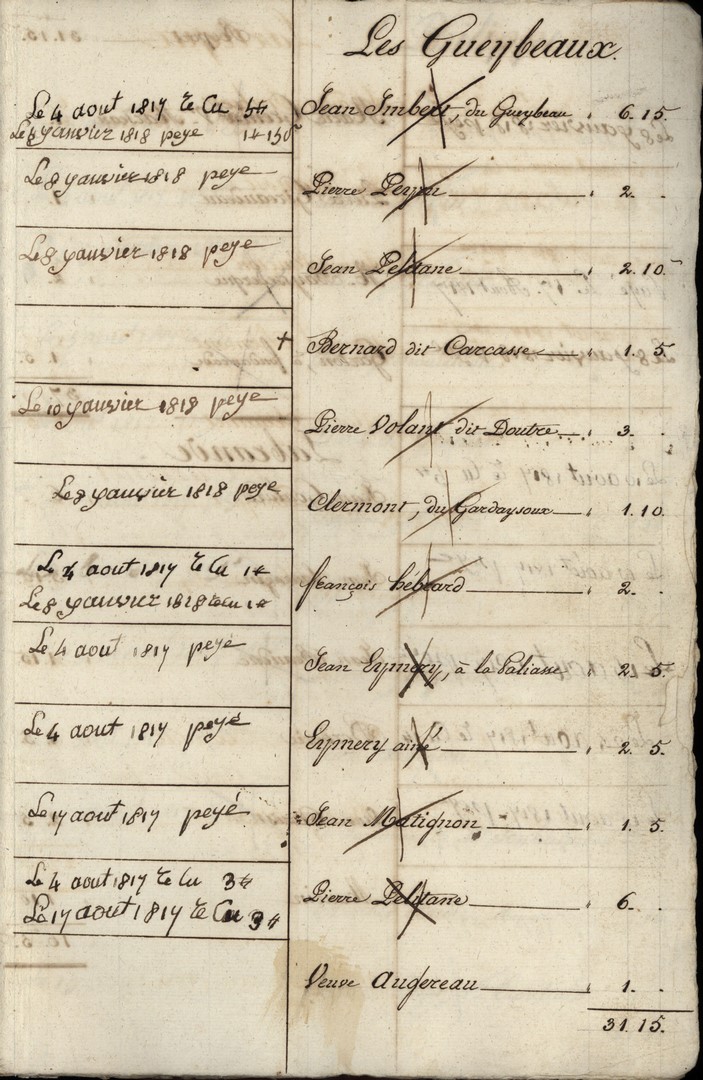 Les Gueybeaux.
Le 4 aout 1817 Re Cu 5# Jean Imbert, du Gueybeau 6. 15.
Le 8 yanvier 1818 peye 1# 15 s
Le 8 yanvier 1818 peye Pierre 2. .
Le 8 yanvier 1818 peye Jean Pelitane 2. 10
+ Bernard dit Carcasse 1. 5.
Le 10 yanvier 1818 peye Pierre Volant dit Doutre 3. .
Le 8 yanvier 1818 peye Clermont, du Gardaysoux 1. 10.
Le 4 aout 1817 Re Cu 1# françois hébrard 2. .
Le 8 yanvier 1818 Re Cu 1#
Le 4 aout 1817 peye Jean Eymery, à la Paliasse 2. 5.
Le 4 aout 1817 peyé Eymery ainé 2. 5.
Le 17 aout 1817 peyé Jean Matignon 1. 5.
Le 4 aout 1817 Re Cu 3# Pierre Pelitane 6. .
Le 17 aout 1817 Re Cu 3#
Veuve Augereau 1. .
31. 15.